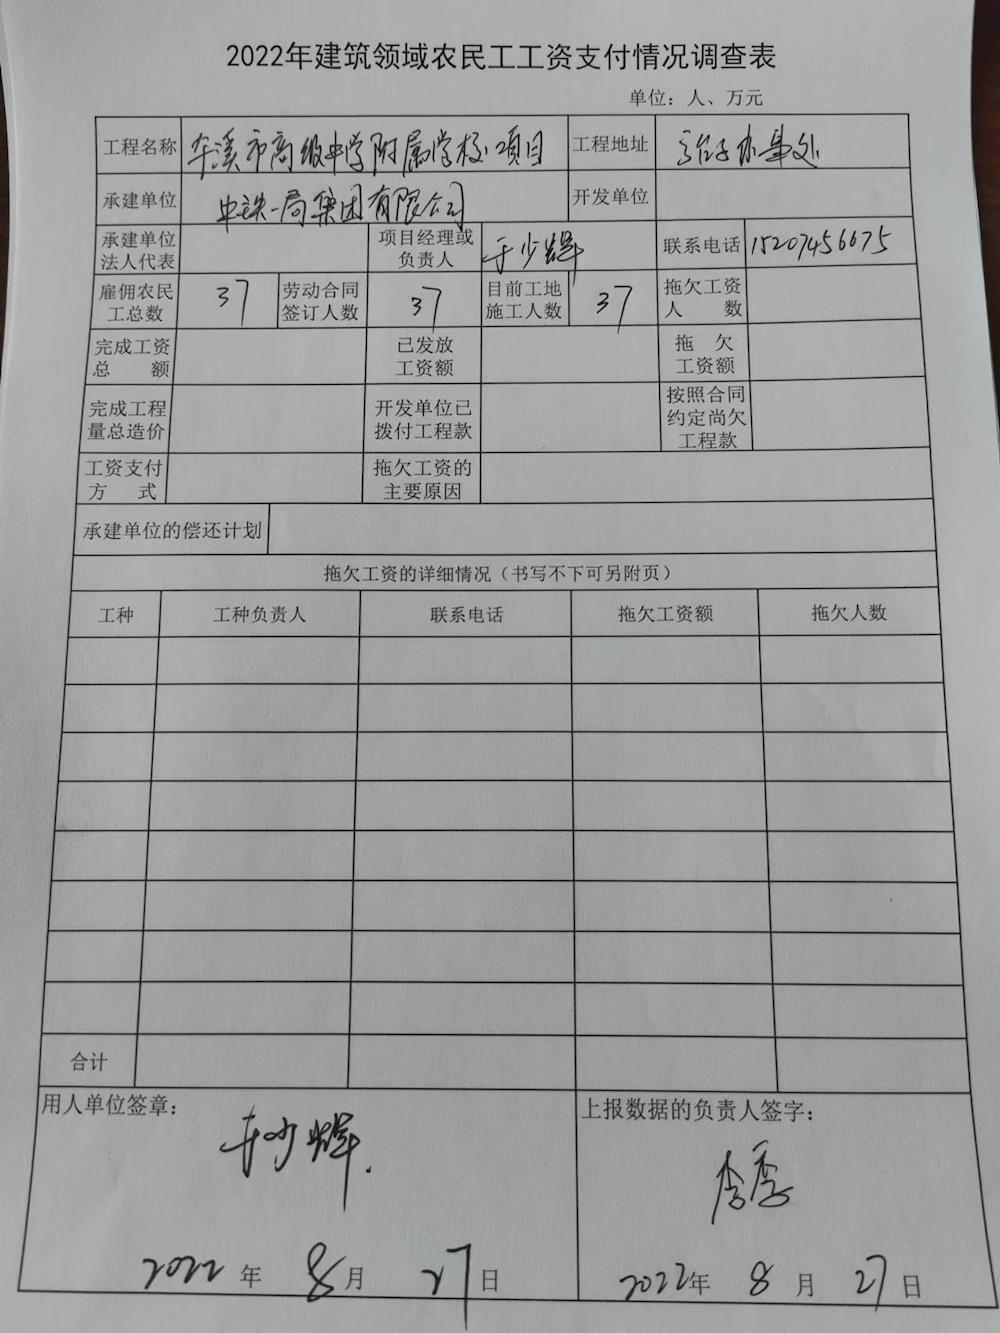 2022年建筑领域农民工工资支付情况调查表
单位：人、万元
工程名称 本溪市高级中学附属学校项目 工程地址 办事处
承建单位 中铁一局集团有限公司 开发单位
承建单位法人代表 项目经理或负责人 于少辉 联系电话 15207456675
雇佣农民工总数 37 劳动合同签订人数 37 目前工地施工人数 37 拖欠工资人数
完成工资总额 已发放工资额 拖欠工资额
完成工程量总造价 开发单位已拨付工程款 按照合同约定尚欠工程款
工资支付方式 拖欠工资的主要原因
承建单位的偿还计划
拖欠工资的详细情况（书写不下可另附页）
工种 工种负责人 联系电话 拖欠工资额 拖欠人数
合计
用人单位签章： 上报数据的负责人签字：
于少辉. 李季
2022年 8月 27日 2022年 8月 27日